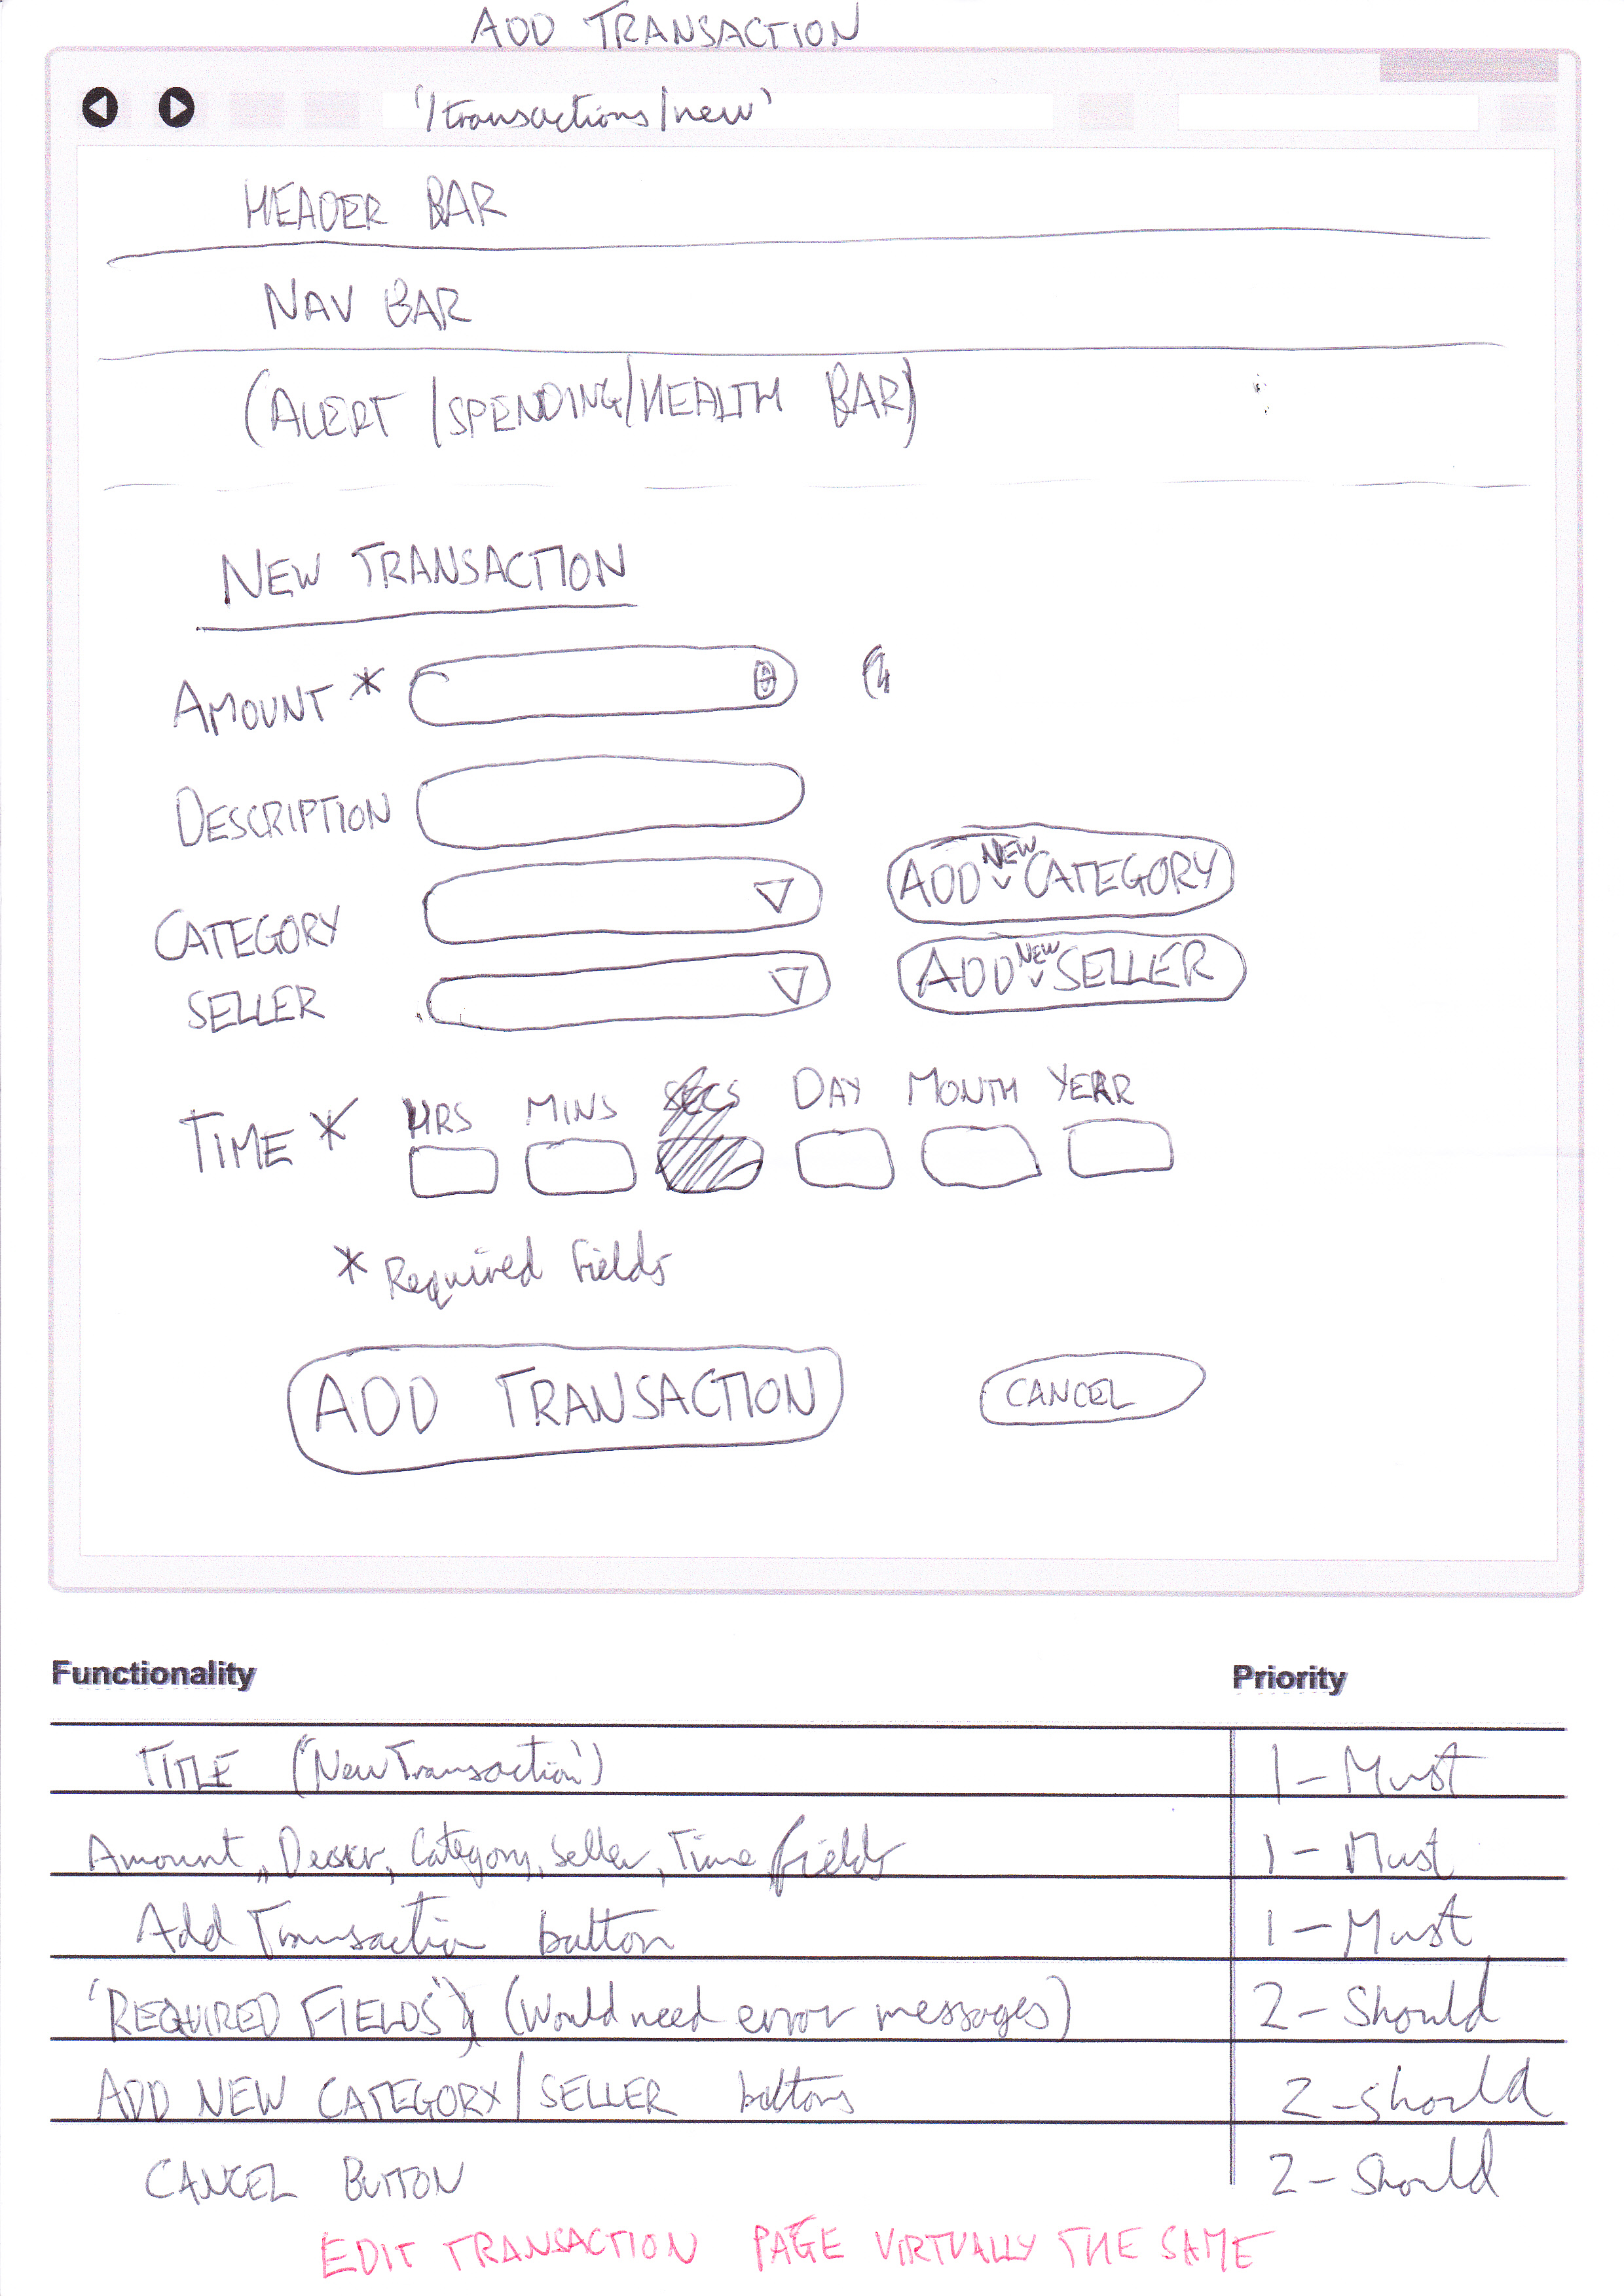 ADD TRANSACTION
'/transactions/new'
HEADER BAR
NAV BAR
(ALERT/SPENDING/HEALTH BAR)
NEW TRANSACTION
AMOUNT *
DESCRIPTION
CATEGORY ADD NEW CATEGORY
SELLER ADD NEW SELLER
TIME * HRS MINS SECS DAY MONTH YEAR
* Required fields
ADD TRANSACTION CANCEL
Functionality Priority
TITLE ('New Transaction') 1 - Must
Amount, Descr, Category, Seller, Time fields 1 - Must
Add Transaction button 1 - Must
'REQUIRED FIELDS' (Would need error messages) 2 - Should
ADD NEW CATEGORY/SELLER buttons 2 - Should
CANCEL BUTTON 2 - Should
EDIT TRANSACTION PAGE VIRTUALLY THE SAME